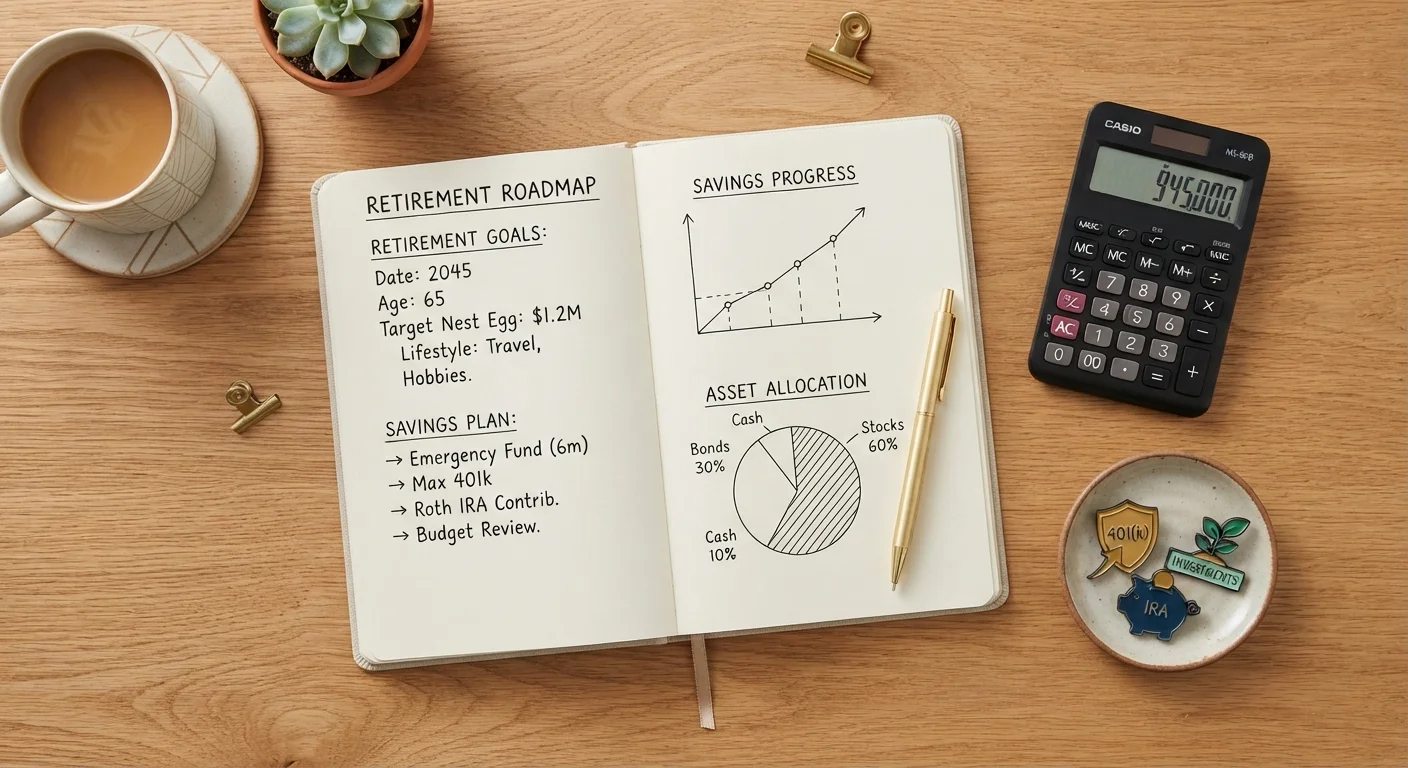 RETIREMENT ROADMAP
RETIREMENT GOALS:
Date: 2045
Age: 65
Target Nest Egg: $1.2M
Lifestyle: Travel,
Hobbies.
SAVINGS PLAN:
→ Emergency Fund (6m)
→ Max 401k
→ Roth IRA Contrib.
→ Budget Review.
SAVINGS PROGRESS
ASSET ALLOCATION
Cash
Stocks
60%
Bonds
30%
Cash
10%
CASIO
945,000.
MC MC M− M+ ÷
7 8 9 ×
4 5 6 −
AC 1 2 3
0 00 · = +
IRA